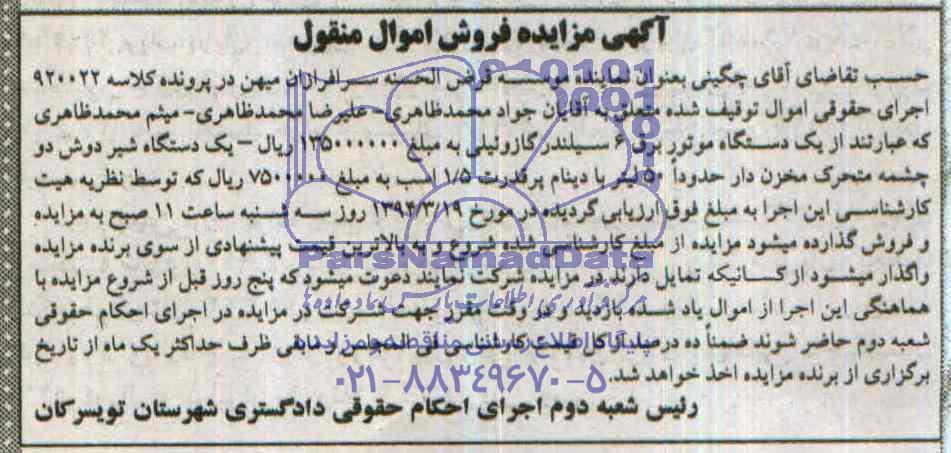 آگهی مزایده فروش اموال منقول
حسب تقاضای آقای چگینی بعنوان نماینده موسسه قرض الحسنه سرافرازان میهن در پرونده کلاسه ۹۲۰۰۲۲
اجرای حقوقی اموال توقیف شده متعلق به آقایان جواد محمدظاهری- علیرضا محمدظاهری- میثم محمدظاهری
که عبارتند از یک دستگاه موتور برق ۶ سیلندر گازوئیلی به مبلغ ۱۳۵۰۰۰۰۰۰ ریال – یک دستگاه شیر دوش دو
چشمه متحرک مخزن دار حدوداً ۵۰ لیتر با دینام پرقدرت ۱/۵ اسب به مبلغ ریال که توسط نظریه هیت
کارشناسی این اجرا به مبلغ فوق ارزیابی گردیده در مورخ ۱۳۹۴/۳/۱۹ روز سه شنبه ساعت ۱۱ صبح به مزایده
و فروش گذارده میشود مزایده از مبلغ کارشناسی شده شروع و به بالاترین قیمت پیشنهادی از سوی برنده مزایده
واگذار میشود از کسانیکه تمایل دارند در مزایده شرکت نمایند دعوت میشود که پنج روز قبل از شروع مزایده با
هماهنگی این اجرا از اموال یاد شده بازدید و در وقت مقرر جهت شرکت در مزایده در اجرای احکام حقوقی
شعبه دوم حاضر شوند ضمناً ده درصد از کل قیمت کارشناسی فی المجلس و مابقی ظرف حداکثر یک ماه از تاریخ
برگزاری از برنده مزایده اخذ خواهد شد.
رئیس شعبه دوم اجرای احکام حقوقی دادگستری شهرستان تویسرکان
ParsNamadData
۰۲۱-۸۸۳۴۹۶۷۰-۵